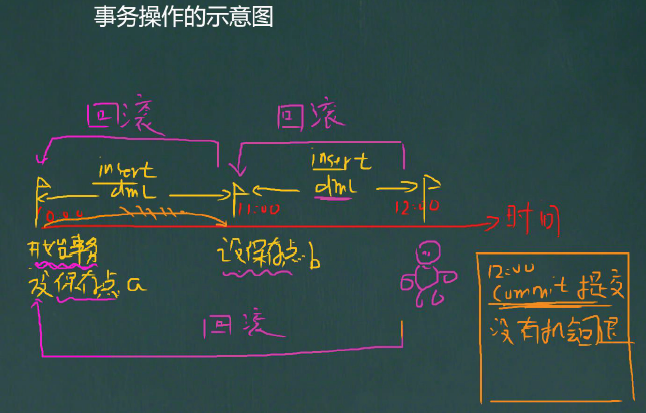 事务操作的示意图
回滚 回滚
insert insert
dml dml
11:00 12:00 时间
开始事务 设保存点 b
设保存点 a
回滚
12:00
commit 提交
没有机会回退